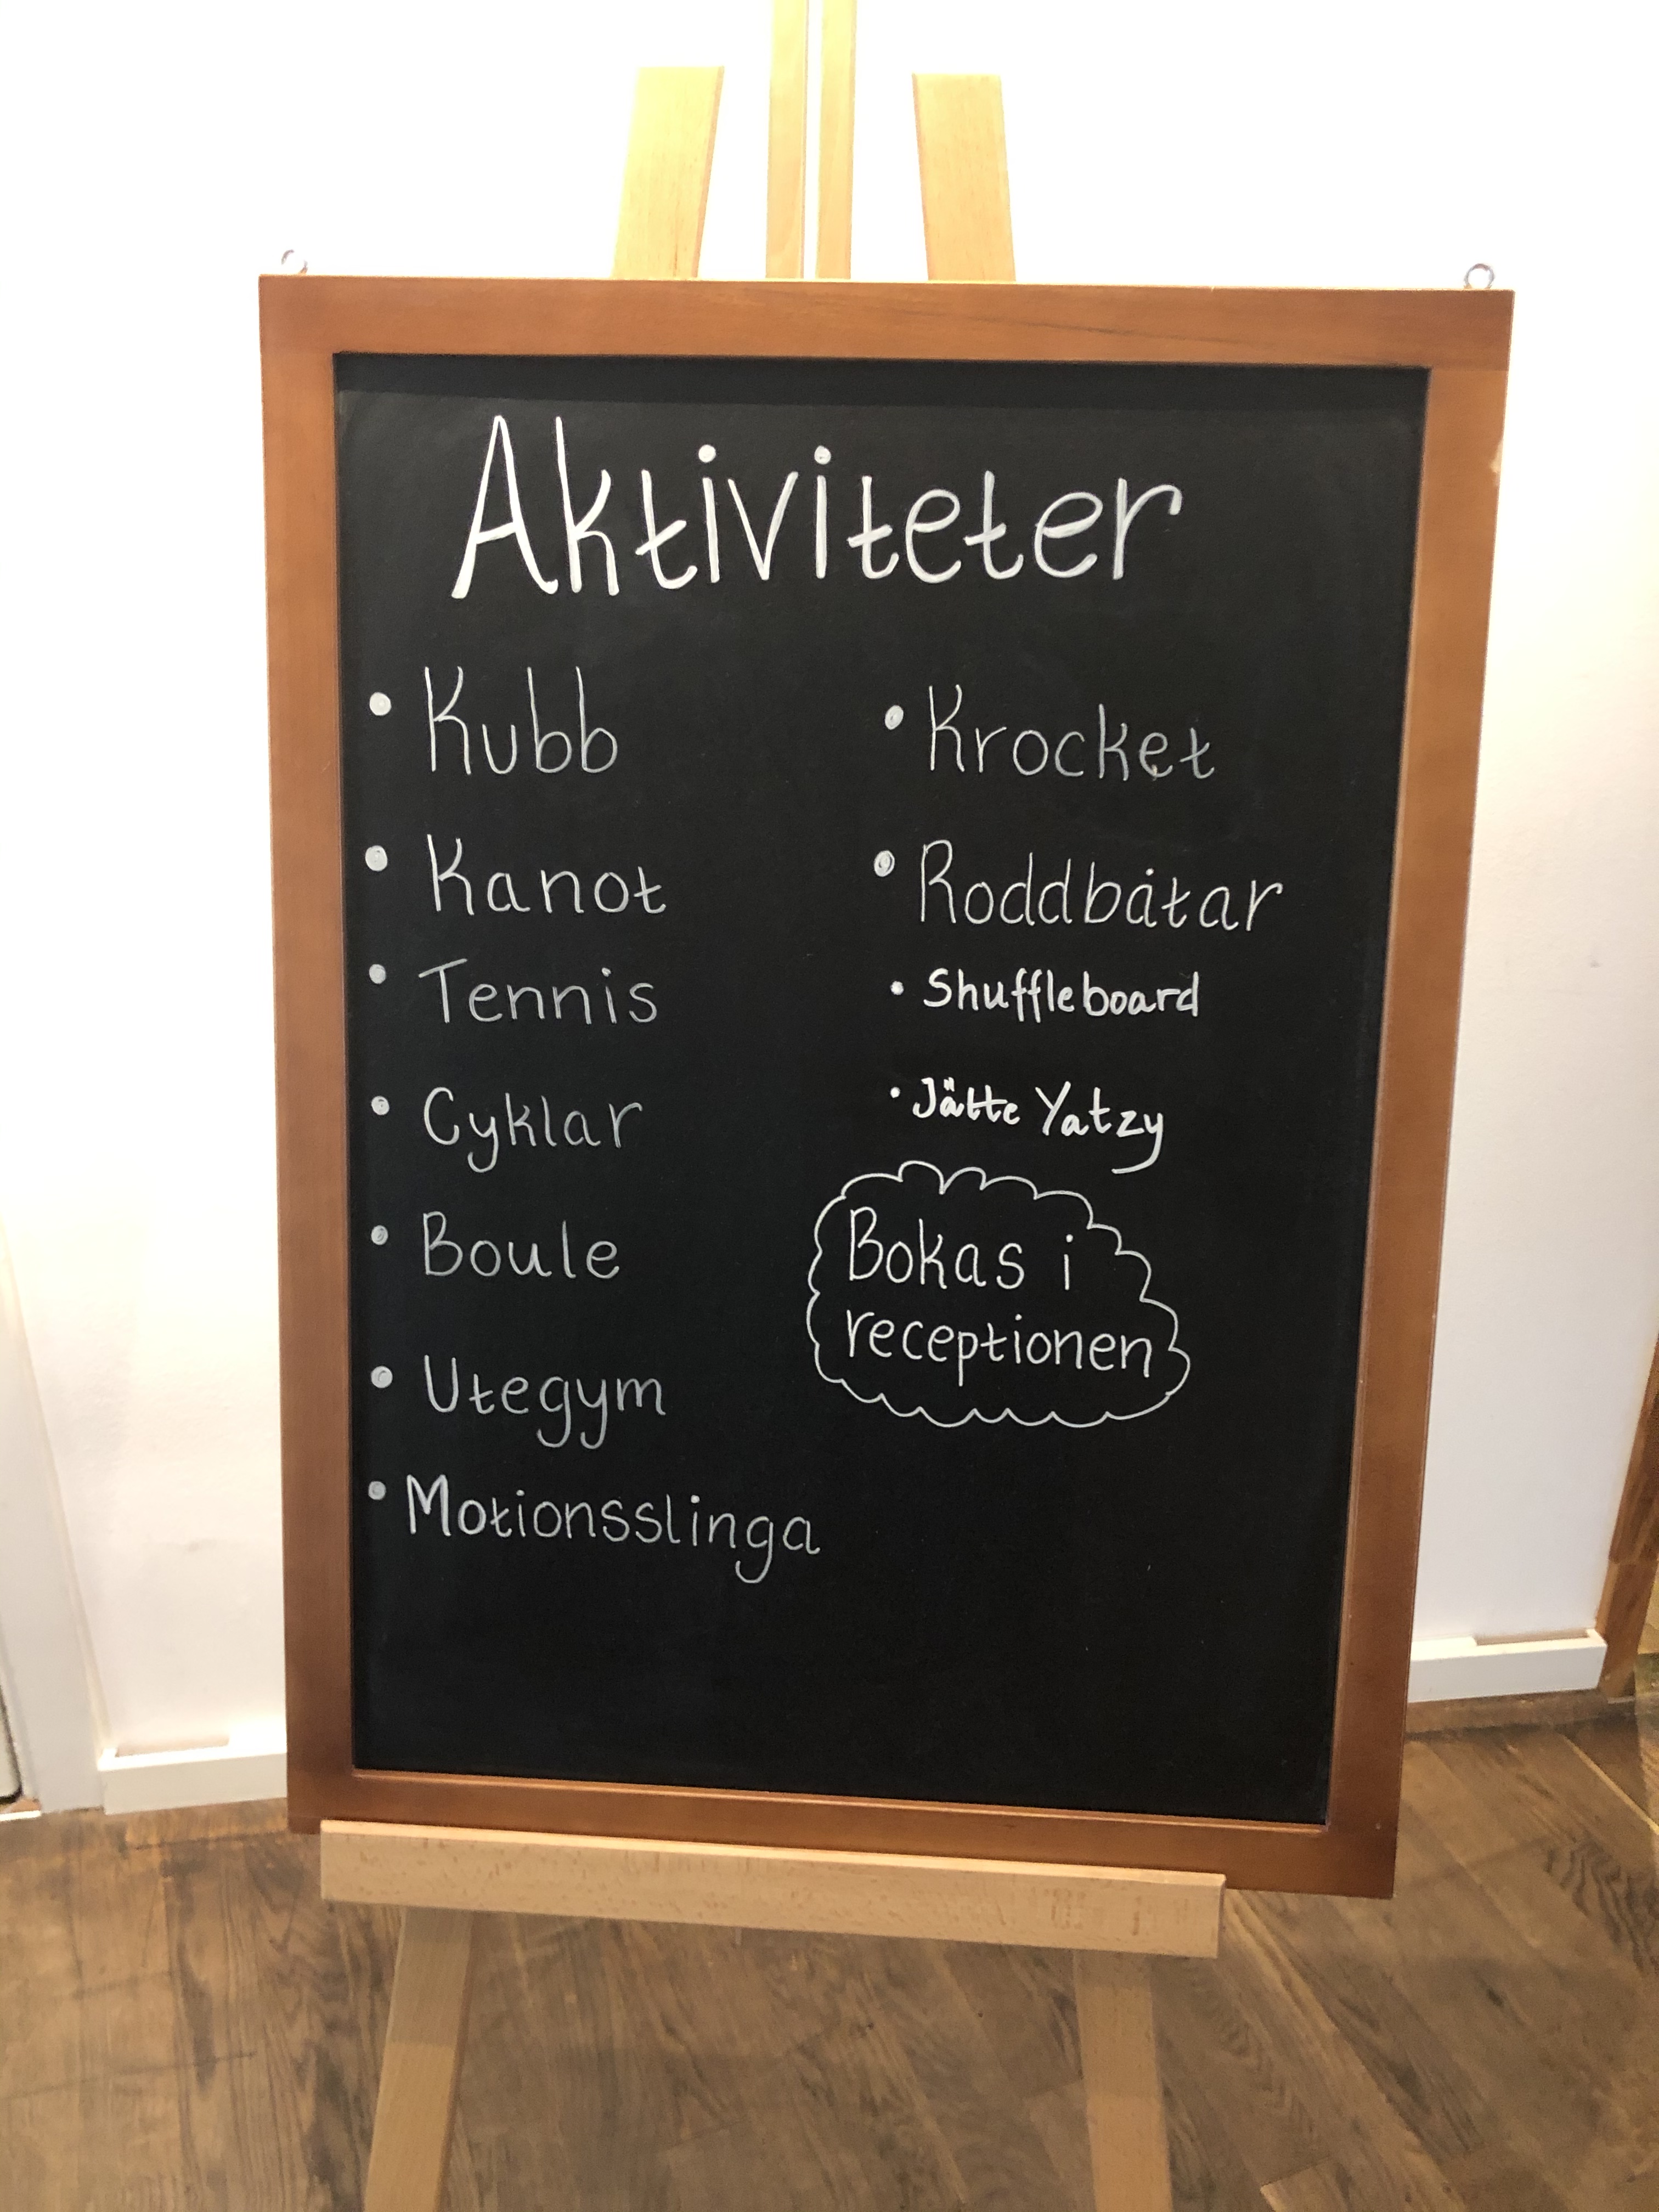 Aktiviteter
• Kubb
• Kanot
• Tennis
• Cyklar
• Boule
• Utegym
• Motionsslinga
• Krocket
• Roddbåtar
• Shuffleboard
• Jätte Yatzy
Bokas i
receptionen